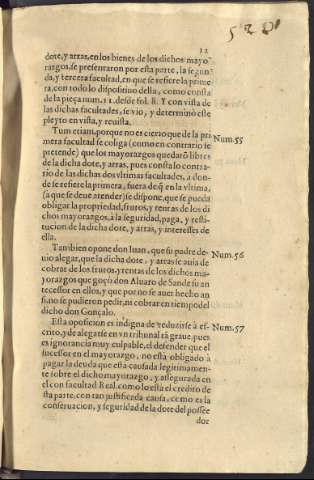 12
dote, y arras, en los bienes de los dichos mayo
razgos, se presentaron por esta parte, la segun
da, y tercera facultad, en que se refiere la prime
ra, con todo lo dispositiuo della, como consta
de la pieça num. 11. desde fol. 8. Y con vista de
las dichas facultades, se vio, y determinò este
pleyto en vista, y reuista.
Tum etiam, porque no es cierto que de la pri Num. 55
mera facultad se coliga (como en contrario se
pretende) que los mayorazgos quedarõ libres
de la dicha dote, y arras, pues consta lo contra
rio de las dichas dos vltimas facultades, a don-
de se refiere la primera, fuera de q̃ en la vltima,
(a que se deue atender) se dispone, que se pueda
obligar la propriedad, frutos, y rentas de los di
chos mayorazgos, à la seguridad, paga, y resti-
tucion de la dicha dote, y arras, y interesses de
ella.
Tambien opone don Iuan, que su padre de- Num. 56
uio alegar, que la dicha dote, y arras se auia de
cobrar de los frutos, y rentas de los dichos ma-
yorazgos que gozò don Aluaro de Sande su an
tecessor en ellos, y que por no se auer hecho an
si, no se pudieron pedir, ni cobrar en tiempo del
dicho don Gonçalo.
Esta oposicion es indigna de reduzirse à es- Num. 57
crito, y de alegarse en vn tribunal tã graue, pues
es ignorancia muy culpable, el defender que el
sucessor en el mayorazgo, no està obligado à
pagar la deuda que està causada legitimamen-
te sobre el dicho mayorazgo, y assegurada en
el con facultad Real, como lo està el credito de
esta parte, con tan justificada causa, como es la
conseruacion, y seguridad de la dote del possee
dor